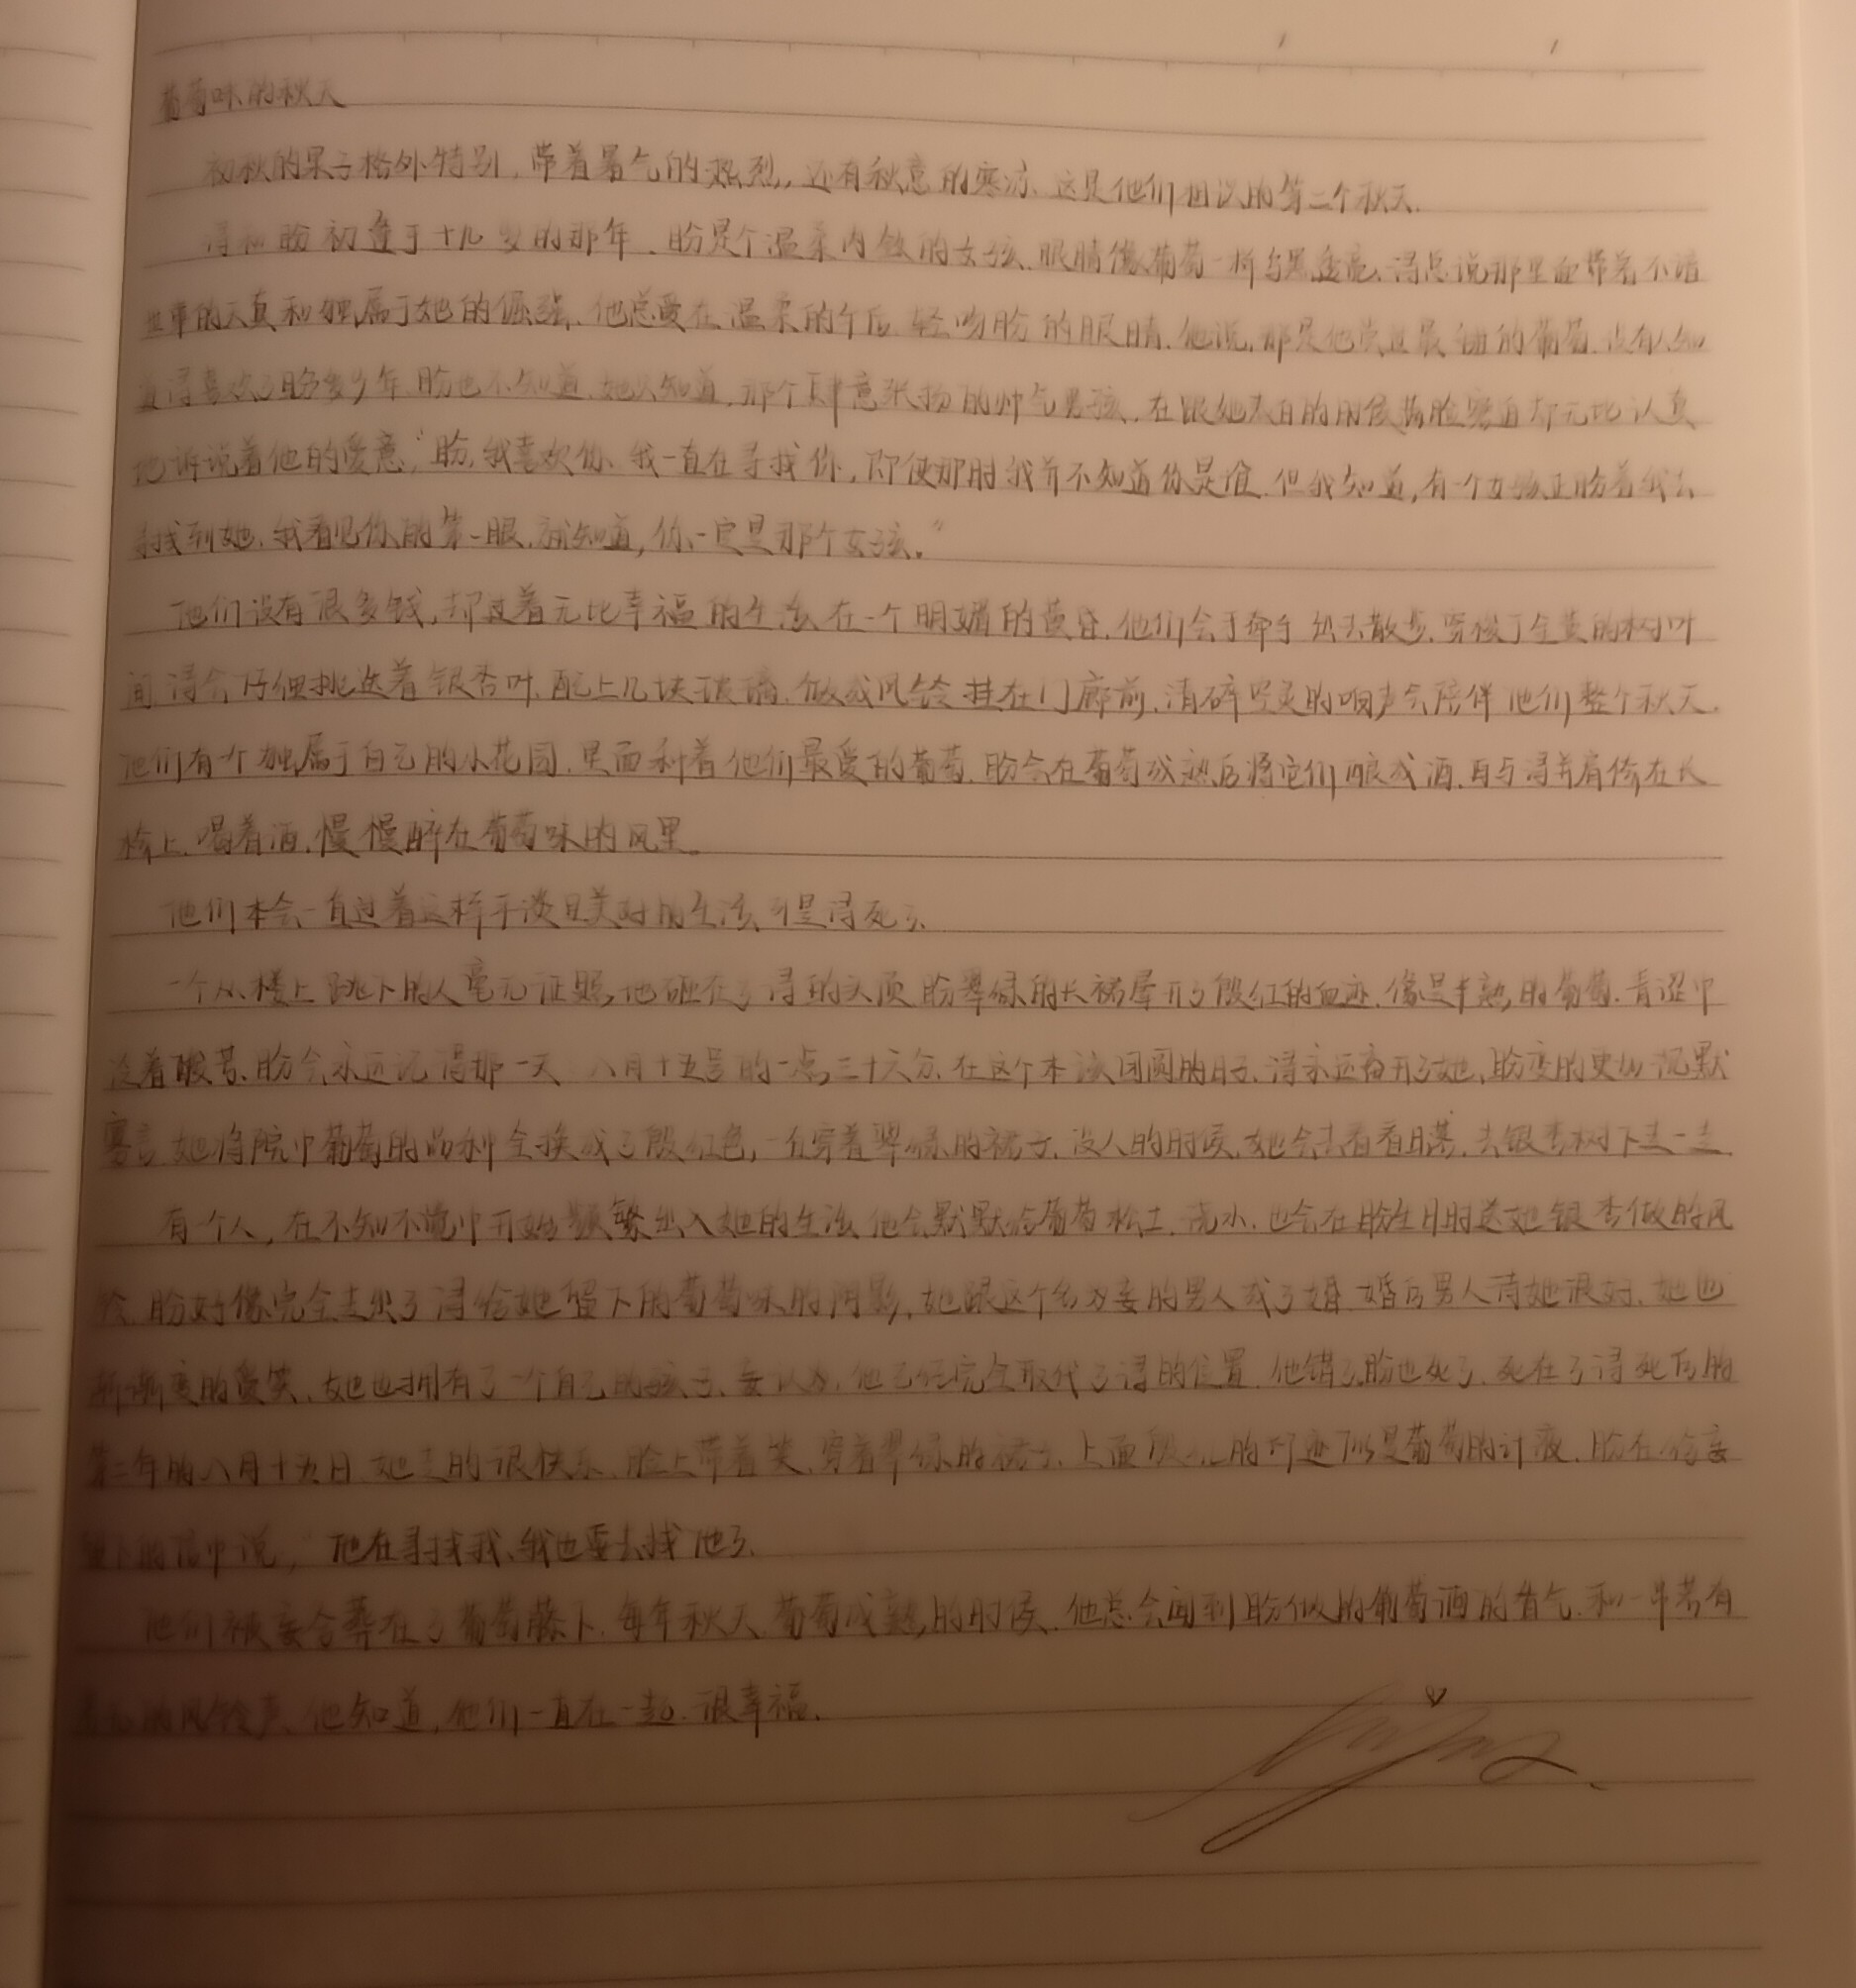 葡萄味的秋天
初秋的果子格外特别,带着暑气的热烈,还有秋意的寒凉,这是他们相识的第二个秋天.
浔和盼初逢于十几岁的那年,盼是个温柔内敛的女孩,眼睛像葡萄一样乌黑透亮,浔总说那里面带着不谙
世事的天真和独属于她的倔强,他总爱在温柔的午后,轻吻盼的眼睛.他说,那是他尝过最甜的葡萄.没有人知
道浔喜欢了盼多少年,盼也不知道,她只知道,那个肆意张扬的帅气男孩,在跟她表白的时候 却无比认真
地诉说着他的爱意,"盼,我喜欢你、我一直在寻找你,即使那时我并不知道你是谁,但我知道,有一个女孩正盼着我去
寻找到她.我看见你的第一眼,就知道,你一定是那个女孩."
他们没有很多钱,却过着无比幸福的生活 在一个明媚的黄昏,他们会手牵手出去散步,穿梭于金黄的树叶
间,浔会仔细挑选着银杏叶,配上几块玻璃,做成风铃挂在门廊前,清碎空灵的响声会陪伴他们整个秋天.
他们有一个独属于自己的小花园,里面种着他们最爱的葡萄,盼会在葡萄成熟后将它们酿成酒,再与浔并肩倚在长
椅上,喝着酒,慢慢醉在葡萄味的风里。
他们本会一直过着这样平淡且美好的生活,可是浔死了.
一个从楼上跳下的人毫无征兆,他砸在了浔的头顶 盼翠绿的长裙晕开了殷红的血迹,像是半熟的葡萄,青涩中
泛着酸苦,盼会永远记得那一天 八月十五号的一点三十六分,在这个本该团圆的日子,浔永远离开了她,盼变的更加沉默
寡言 她将院中葡萄的品种全换成了殷红色,一直穿着翠绿的裙子.没人的时候,她会去看看日落,去银杏树下走一走.
有一个人,在不知不觉中开始频繁出入她的生活 他会默默给葡萄松土,浇水,也会在盼生日时送她银杏做的风
铃,盼好像完全走出了浔给她留下的葡萄味的阴影,她跟这个名为妄的男人成了婚 婚后男人待她很好,她也
渐渐变的爱笑,她也拥有了一个自己的孩子,妄认为,他已经完全取代了浔的位置 他错了,盼也死了,死在了浔死后的
第三年的八月十五日 她走的很快乐,脸上带着笑,穿着翠绿的裙子,上面殷红的印迹 是葡萄的汁液,盼在给妄
留下的信中说,"他在寻找我,我也要去找他了.
他们被妄合葬在了葡萄藤下.每年秋天,葡萄成熟的时候,他总会闻到盼做的葡萄酒的香气,和一串若有
若无的风铃声,他知道,他们一直在一起,很幸福.